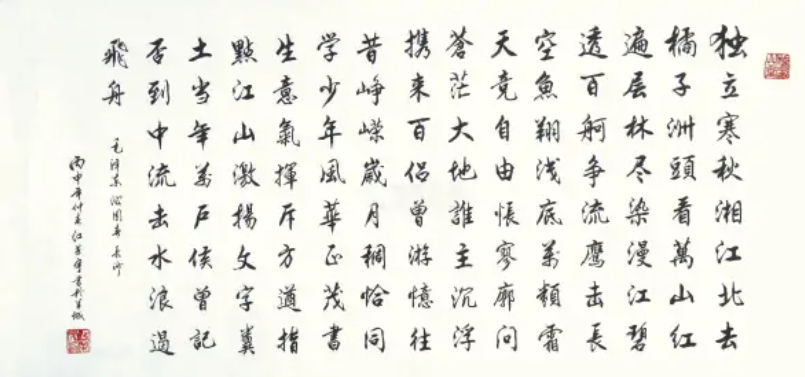 独立寒秋湘江北去
橘子洲頭看萬山红
遍层林尽染漫江碧
透百舸争流鹰击長
空魚翔浅底萬類霜
天竞自由怅寥廓问
蒼茫大地誰主沉浮
携来百侣曾游憶往
昔峥嵘歲月稠恰同
学少年風華正茂書
生意氣揮斥方遒指
點江山激揚文字糞
土当年萬户侯曾記
否到中流击水浪遏
飛舟
毛泽东沁园春长沙
丙申年仲春书於羊城